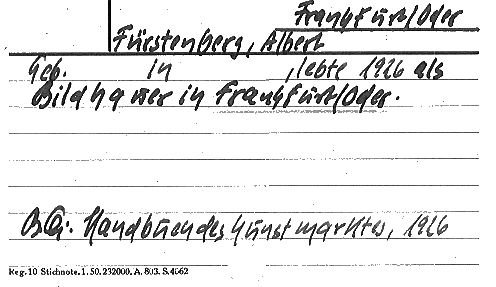 Frankfurt/Oder
Fürstenberg, Albert
Geb. in , lebte 1926 als
Bildhauer in Frankfurt/Oder.
B.Q.: Handbuch des Kunstmarktes, 1926
Reg. 10 Stichnote. 1. 50. 232000. A. 803. S. 4062